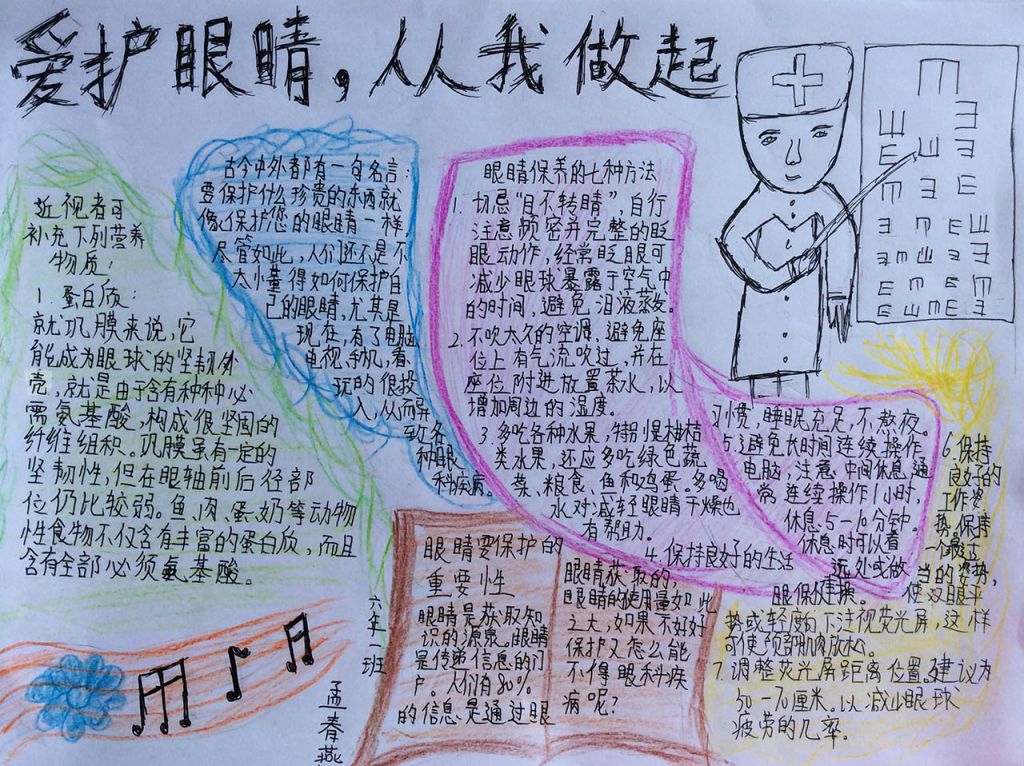 爱护眼睛，从我做起
近视者可
补充下列营养
物质：
1. 蛋白质：
就巩膜来说，它
能成为眼球的坚韧外
壳，就是由于含有种种必
需氨基酸，构成很坚固的
纤维组织。巩膜虽有一定的
坚韧性，但在眼轴前后径部
位仍比较弱。鱼、肉、蛋、奶等动物
性食物不仅含有丰富的蛋白质，而且
含有全部必须氨基酸。
古今中外都有一句名言：
要保护什么珍贵的东西就
像保护您的眼睛一样
尽管如此，人们还不是不
太小懂得如何保护自
己的眼睛，尤其是
现在，有了电脑
电视、手机，看
玩的很投
入，从而导
致各
种眼
科疾病。
眼睛保养的七种方法
1. 切忌“目不转睛”，自行
注意频密并完整的眨
眼动作，经常眨眼可
减少眼球暴露于空气中
的时间，避免泪液蒸发。
2. 不吹太久的空调，避免座
位上有气流吹过，并在
座位附近放置茶水，以
增加周边的湿度。
3. 多吃各种水果，特别是柑桔
类水果，还应多吃绿色蔬
菜、粮食、鱼和鸡蛋。多喝
水对减轻眼睛干燥也
有帮助。
4. 保持良好的生活
习惯，睡眠充足，不熬夜。
5. 避免长时间连续操作
电脑，注意中间休息，通
常连续操作1小时，
休息5—10分钟。
休息时可以看
远处或做
眼保健操。
6. 保持
良好的
工作姿
势。保持
一个最
当的姿势，
使双眼平
势或轻度向下注视荧光屏，这样
可使颈部肌肉放松。
7. 调整荧光屏距离位置。建议为
50—70厘米。以减少眼球
疲劳的几率。
眼睛要保护的
重要性
眼睛是获取知
识的源泉。眼睛
是传递信息的门
户。人们有80%
的信息是通过眼
眼睛获取的，
眼睛的使用量如此
之大，如果不好好
保护又怎么能
不得眼科疾
病呢？
六年一班
孟春燕